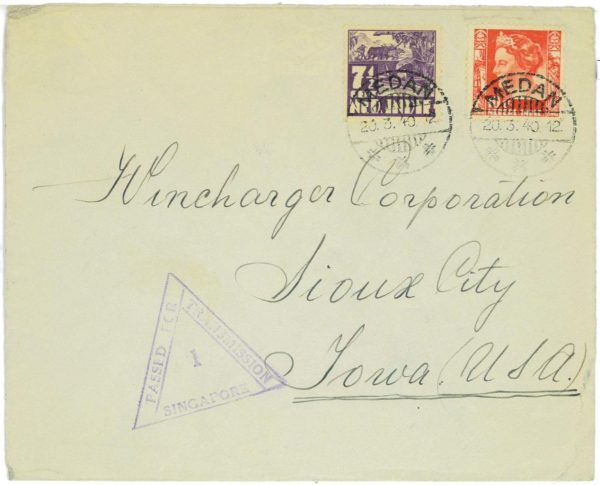 7½
NED. INDIË
MEDAN
20.3.40.12
MEDAN
20.3.40.12
Wincharger Corporation
Sioux City
Iowa (USA.)
PASSED FOR
TRANSMISSION
1
SINGAPORE